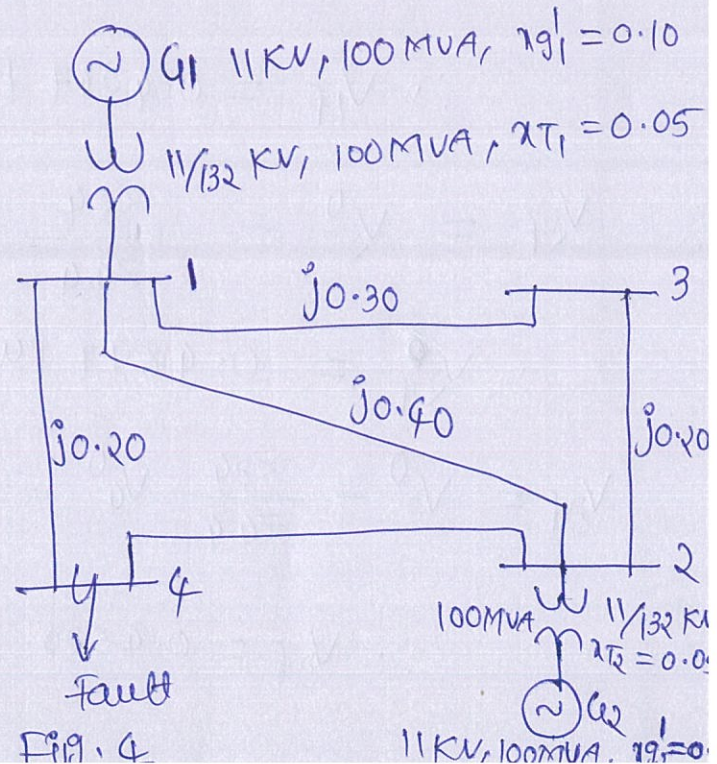 G1 11KV, 100MVA, xg₁' = 0.10
11/132 KV, 100MVA, xT₁ = 0.05
1
j0.30
3
j0.40
j0.20
j0.20
4
2
100MVA
11/132 KV
xT₂ = 0.0
Fault
G2
Fig. 4
11KV, 100MVA, xg₁' = 0.